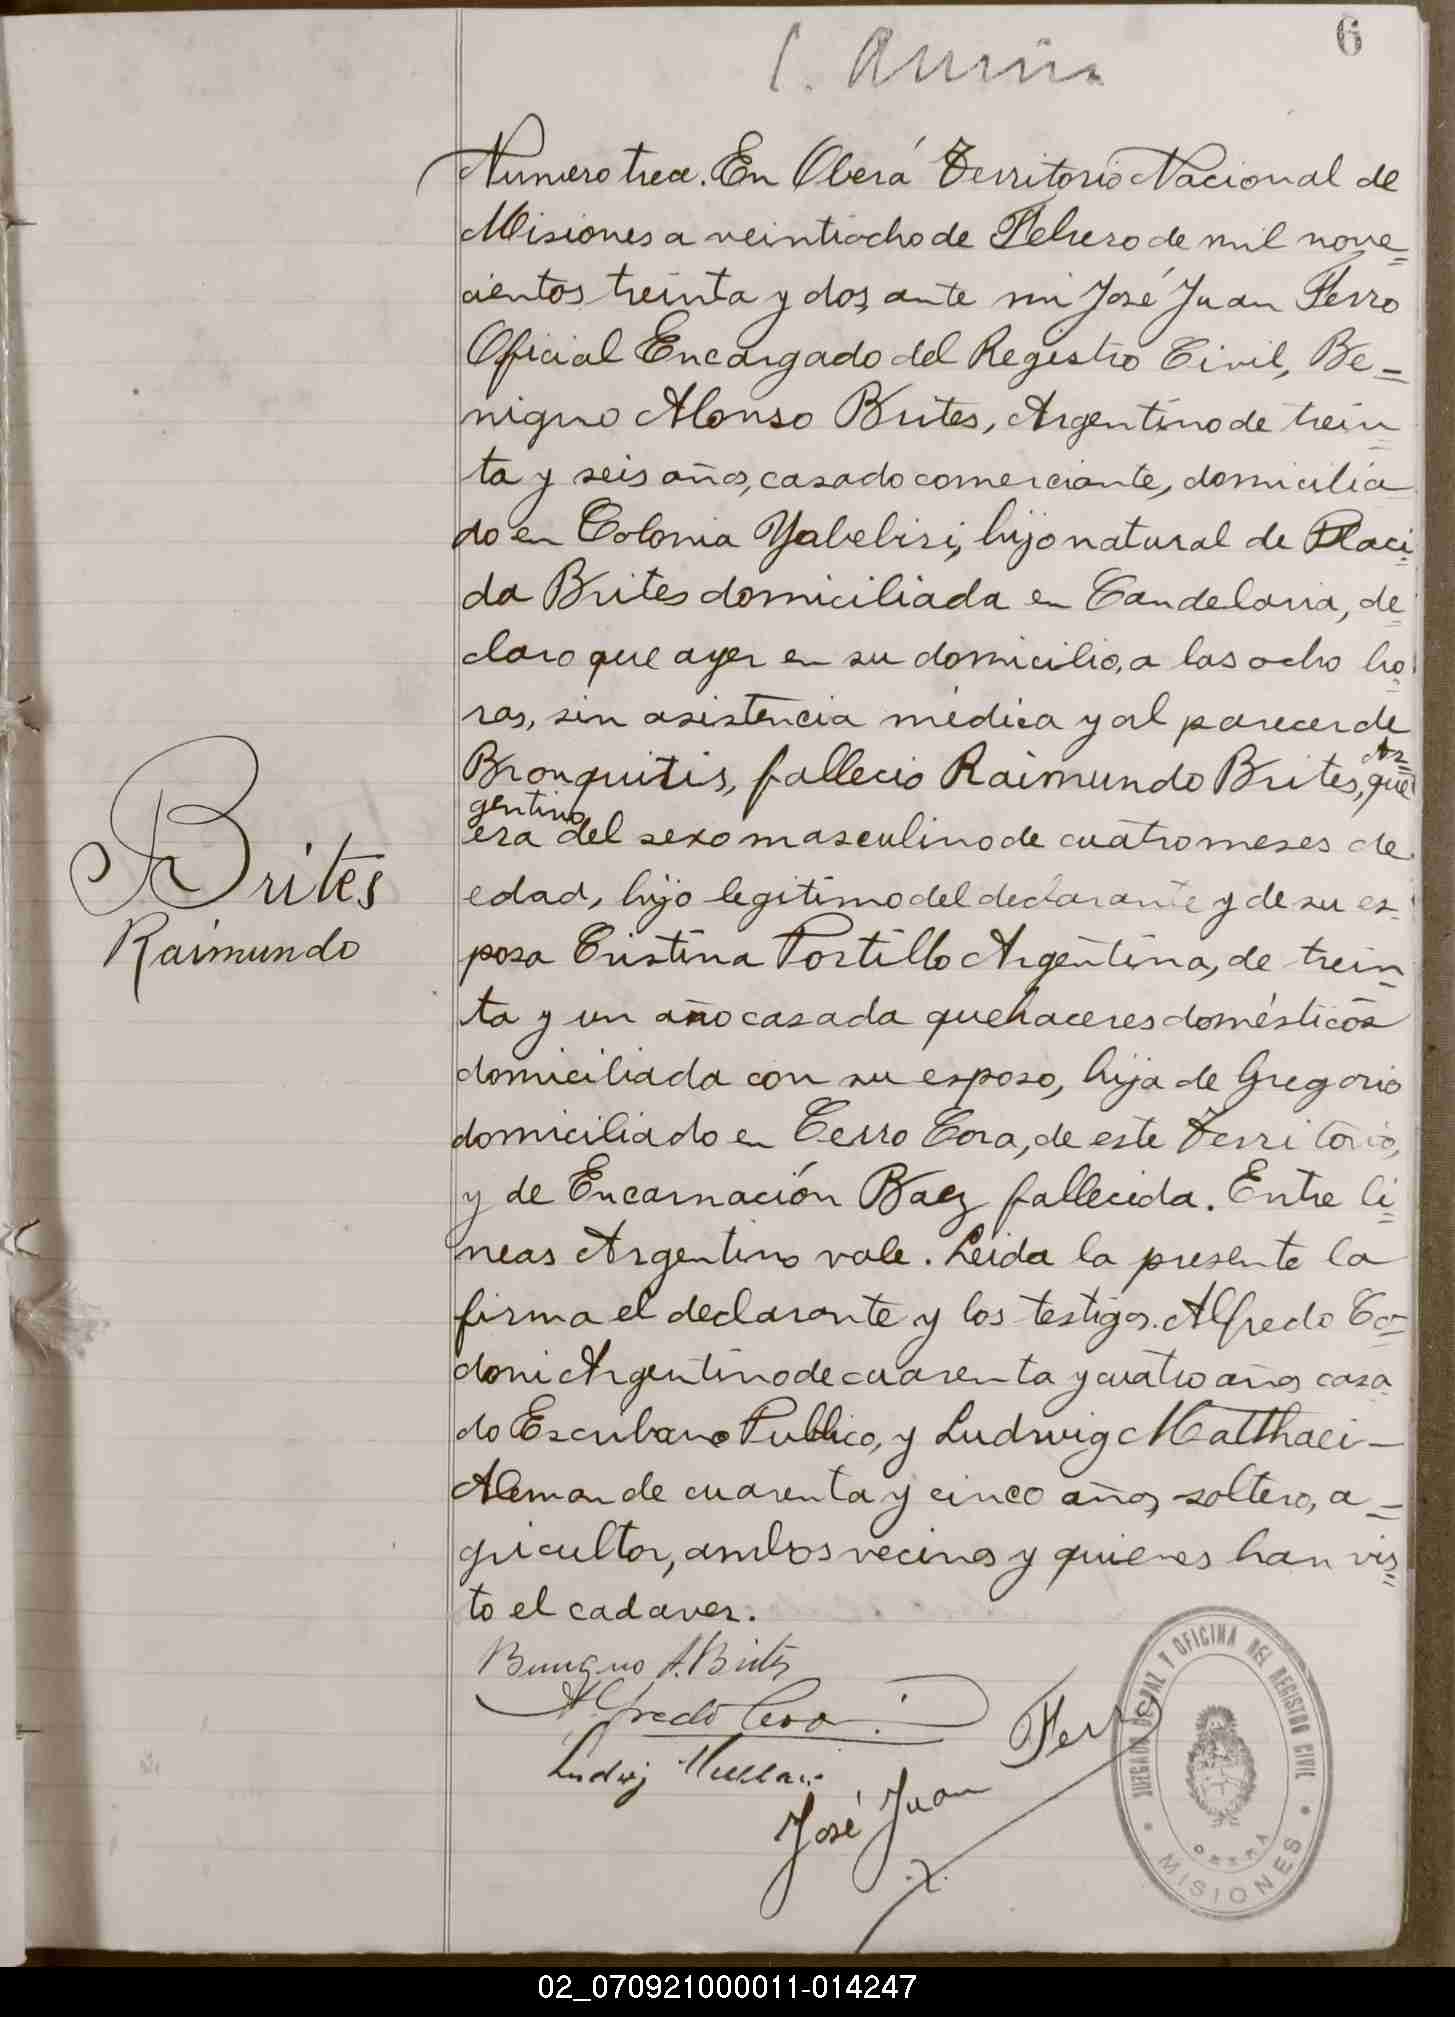 6
Numero trece. En Oberá Territorio Nacional de
Misiones a veintiocho de Febrero de mil nove=
cientos treinta y dos, ante mi José Juan Ferro
Oficial Encargado del Registro Civil, Be=
nigno Alonso Brites, Argentino de trein
ta y seis años, casado comerciante, domicilia
do en Colonia Yabebiri, hijo natural de Placi
da Brites domiciliada en Candelaria, de
claro que ayer en su domicilio, a las ocho ho
ras, sin asistencia médica y al parecer de
Bronquitis, fallecio Raimundo Brites, Ar= que
gentino
era del sexo masculino de cuatro meses de
edad, hijo legitimo del declarante y de su es-
posa Cristina Portillo Argentina, de trein
ta y un año casada quehaceres domésticos
domiciliada con su esposo, hija de Gregorio
domiciliado en Cerro Cora, de este Territorio,
y de Encarnación Baez fallecida. Entre li
neas Argentino vale. Leida la presente la
firma el declarante y los testigos. Alfredo Co=
doni Argentino de cuarenta y cuatro años casa
do Escribano Publico, y Ludwig Matthaei-
Aleman de cuarenta y cinco años, soltero, a=
gricultor, ambos vecinos y quienes han vis
to el cadaver.
Brites
Raimundo
Benigno A. Brites
Alfredo
Ludwig
José Juan Ferro
JUZGADO DE PAZ Y OFICINA DEL REGISTRO CIVIL
OBERA
MISIONES
02_070921000011-014247